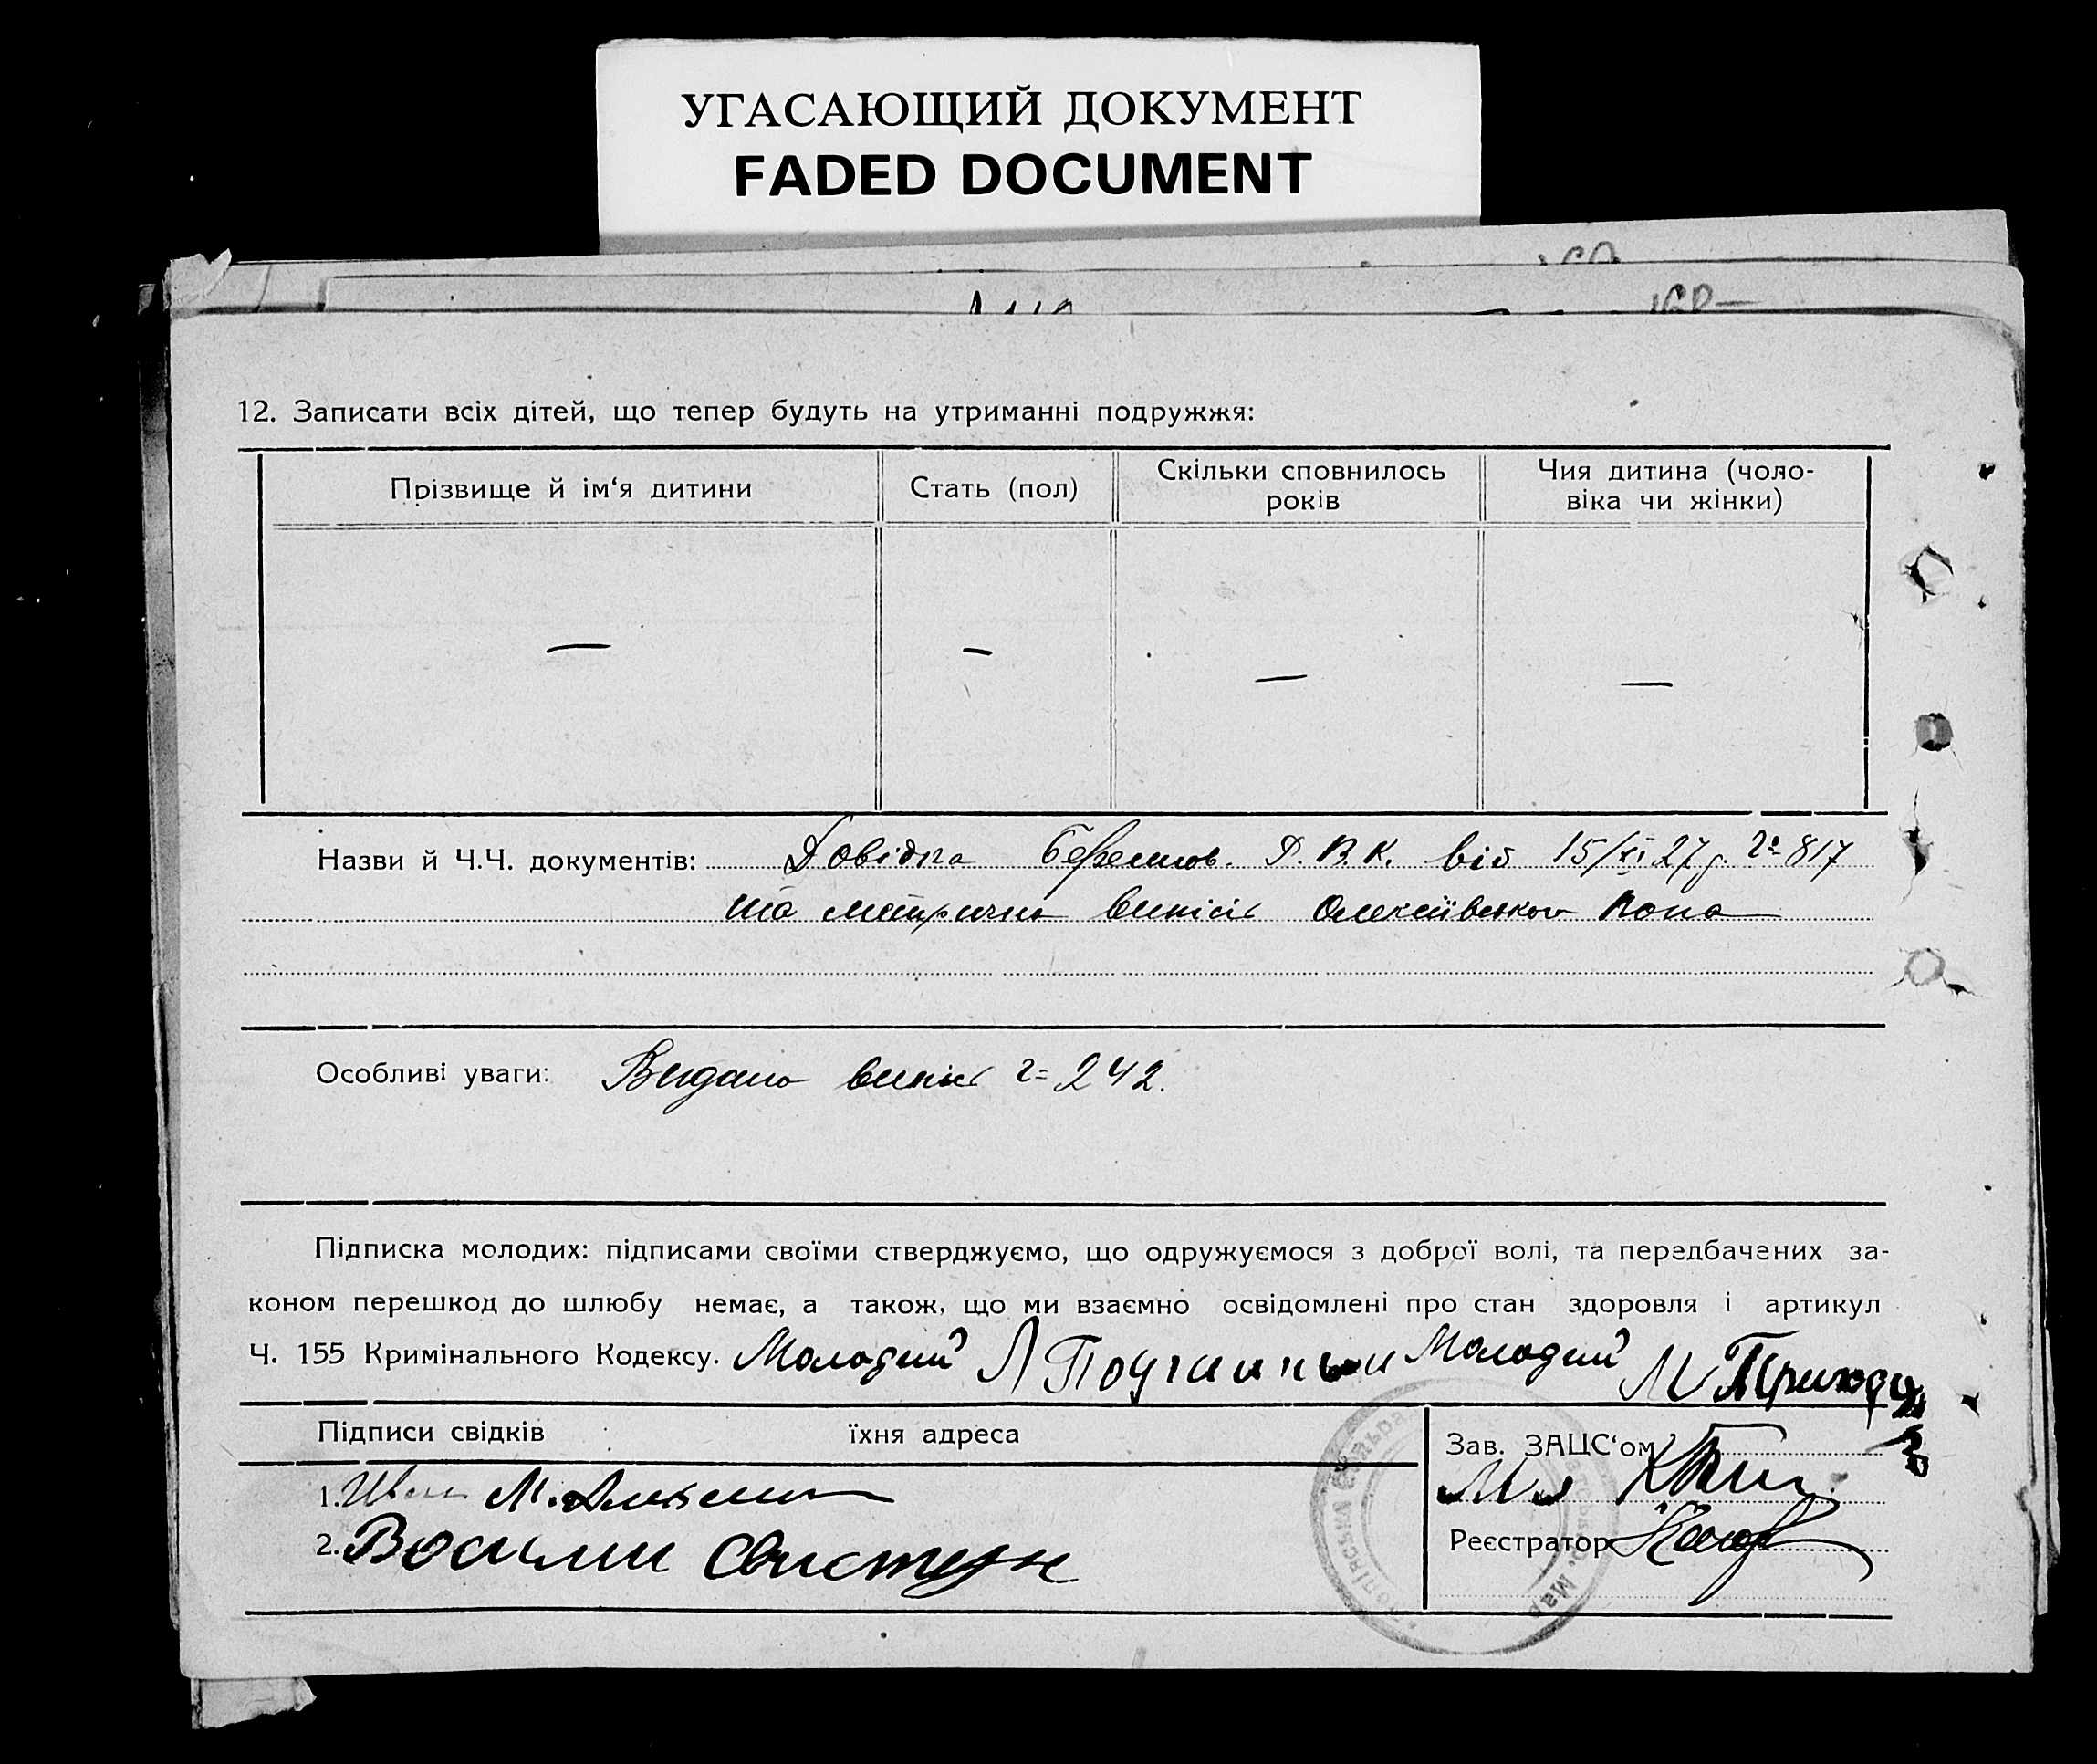 УГАСАЮЩИЙ ДОКУМЕНТ
FADED DOCUMENT
12. Записати всіх дітей, що тепер будуть на утриманні подружжя:
Прізвище й ім‘я дитини
Стать (пол)
Скільки сповнилось
років
Чия дитина (чоло-
віка чи жінки)
— — — —
Назви й Ч.Ч. документів: Довідка В.К. від 15/XI 27 р. 817
та випись Попа
Особливі уваги: Видано випись 242.
Підписка молодих: підписами своїми стверджуємо, що одружуємося з доброї волі, та передбачених за-
коном перешкод до шлюбу немає, а також, що ми взаємно освідомлені про стан здоровля і артикул
Ч. 155 Кримінального Кодексу. Молодий Молодий
Підписи свідків їхня адреса
Зав. ЗАЦС‘ом
1. Иван М.
2. Василий Свистун
Реєстратор